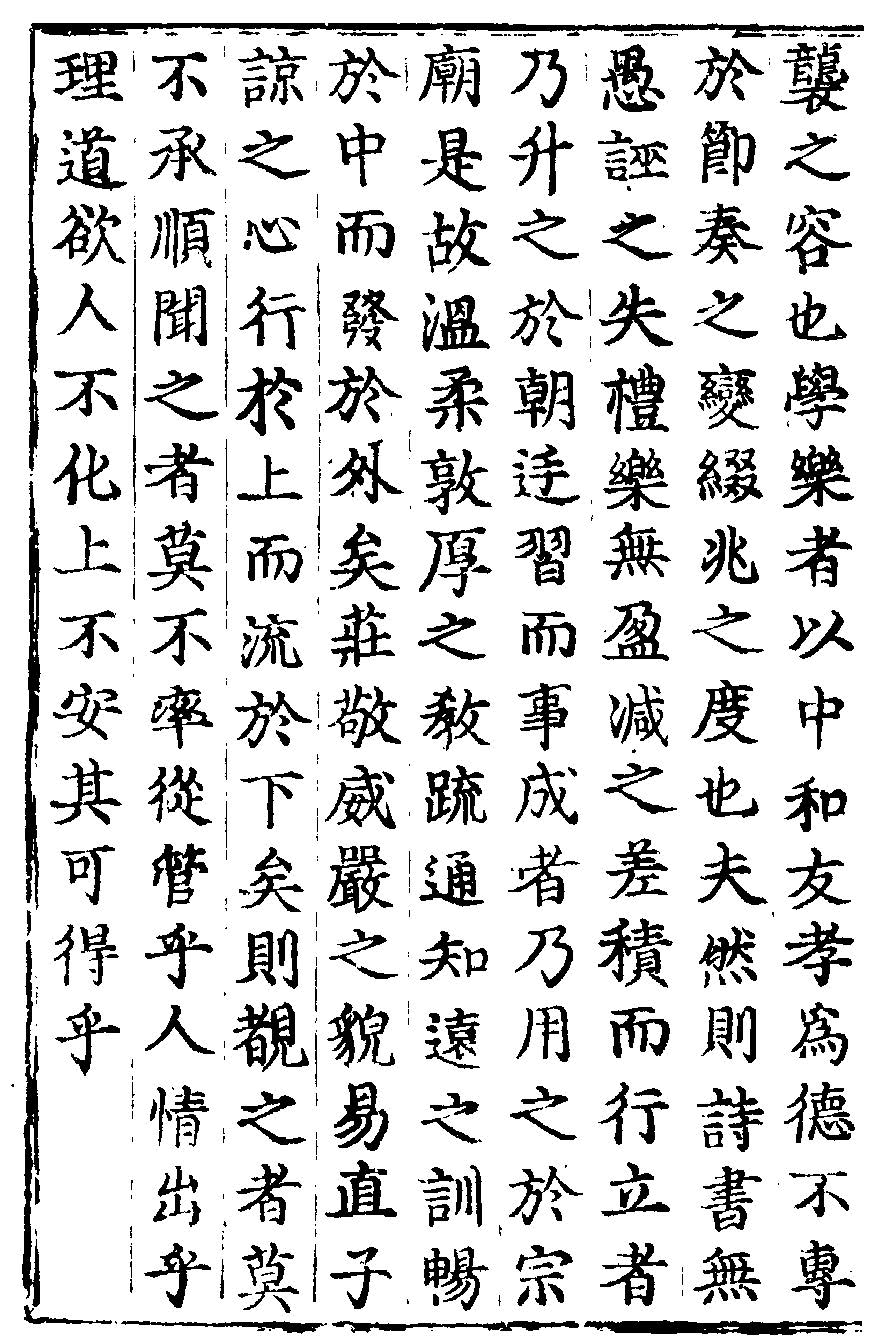 襲之容也學樂者以中和友孝爲德不專
於節奏之變綴兆之度也夫然則詩書無
愚誣之失禮樂無盈減之差積而行立者
乃升之於朝廷習而事成者乃用之於宗
廟是故溫柔敦厚之教疏通知遠之訓暢
於中而發於外矣莊敬威嚴之貌易直子
諒之心行於上而流於下矣則覩之者莫
不承順聞之者莫不率從管乎人情出乎
理道欲人不化上不安其可得乎